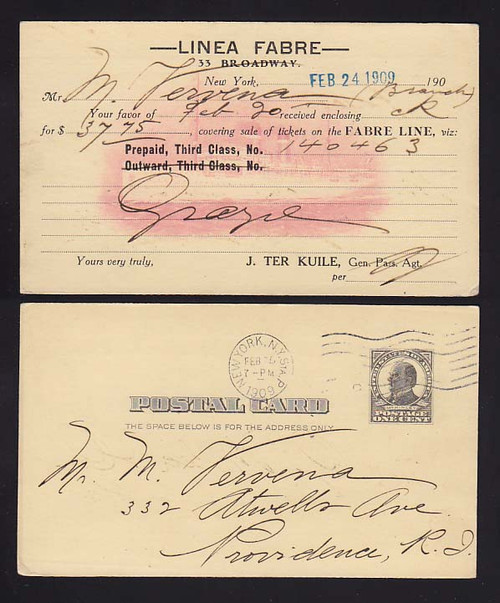 —LINEA FABRE—
33 BROADWAY.
New York, FEB 24 1909 190
Mr M. Vervena (Branch)
Your favor of Feb 20 received enclosing ck
for $ 37.75, covering sale of tickets on the FABRE LINE, viz:
Prepaid, Third Class, No. 140463
Outward, Third Class, No.
Grazie
Yours very truly, J. TER KUILE, Gen. Pass. Agt.
per
NEW YORK, N.Y. STA. P
FEB
7-PM
1909
POSTAGE
ONE CENT
POSTAL CARD
THE SPACE BELOW IS FOR THE ADDRESS ONLY
Mr. M. Vervena
332 Atwells Ave.
Providence, R.I.